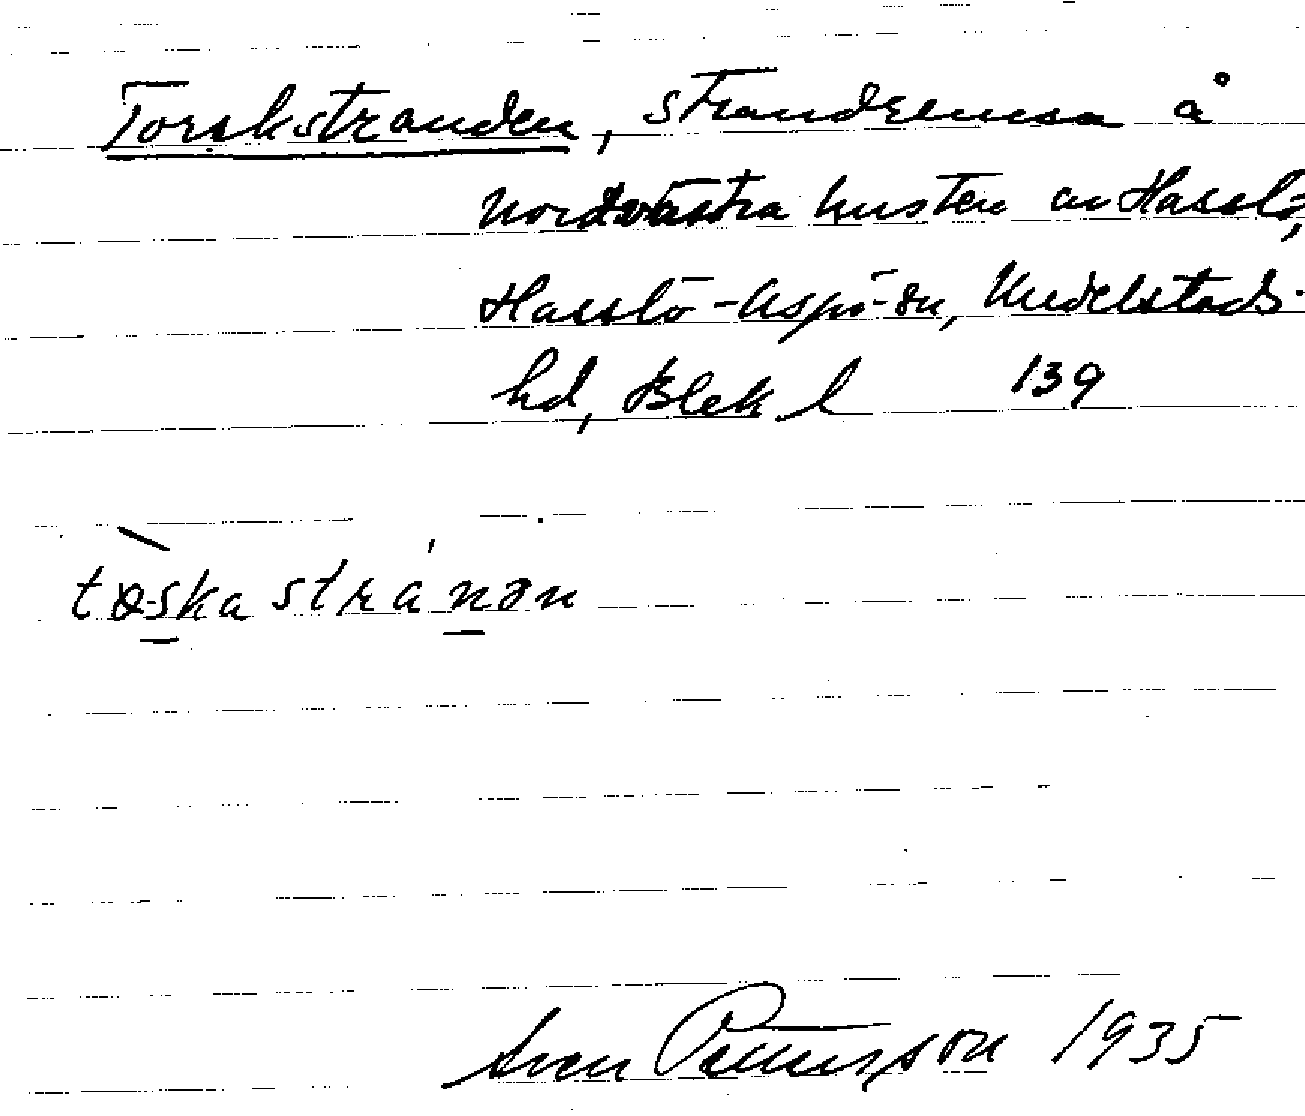 Torskstranden, strandremsa å
nordvästra kusten av Hasslö,
Hasslö-Aspö-sn, Medelstads-
hd, Blek l 139
tøska stránən
Sven Pettersson 1935